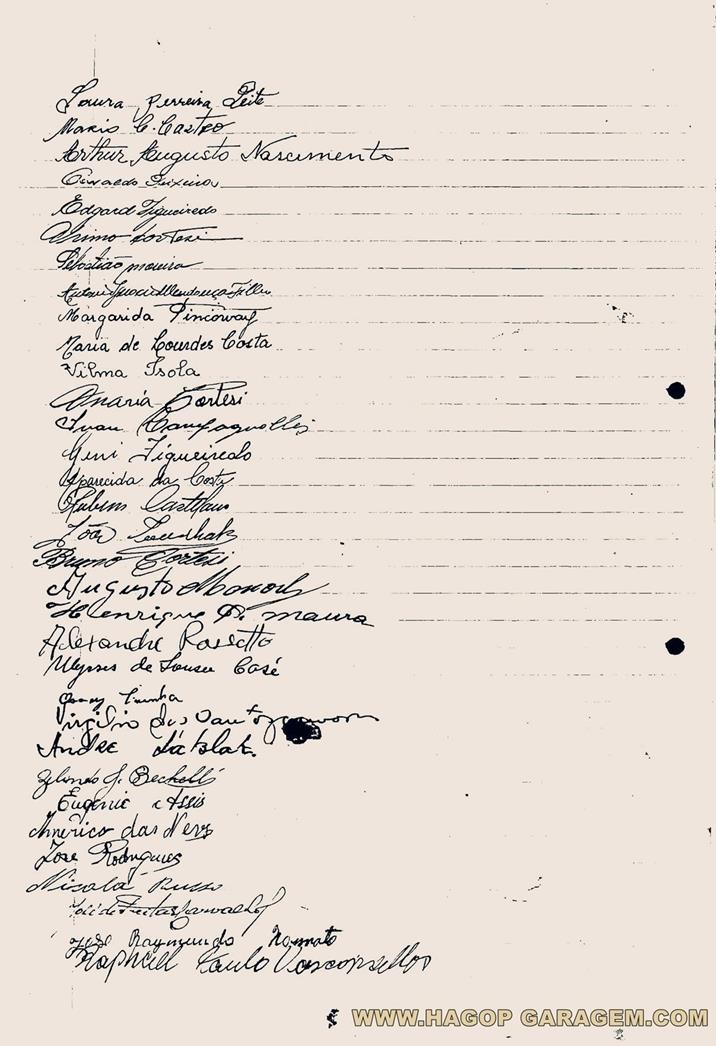 Laura Ferreira Leite
Mario C. Castro
Arthur Augusto Nascimento
Oswaldo Teixeira
Edgard Figueiredo
Primo Cortesi
Sebastião moreira
Antonio Filho
Margarida
Maria de Lourdes Costa
Vilma Isola
Maria Cortesi
Ivan Campagnolli
Figueiredo
Aparecida da Costa
Rubens
João
Bruno Cortesi
Augusto
Henrique D. maura
Alexandre Rossetto
Ulysses de Souza Casé
Cunha
Virgilio dos
Andre
J. Bechelli
Eugenio Assis
Americo das Neves
José Rodrigues
Nicola Russo
José de Freitas Carvalho
José Raymundo Nonnato
Raphael Paulo Vasconsellos
WWW.HAGOP GARAGEM.COM